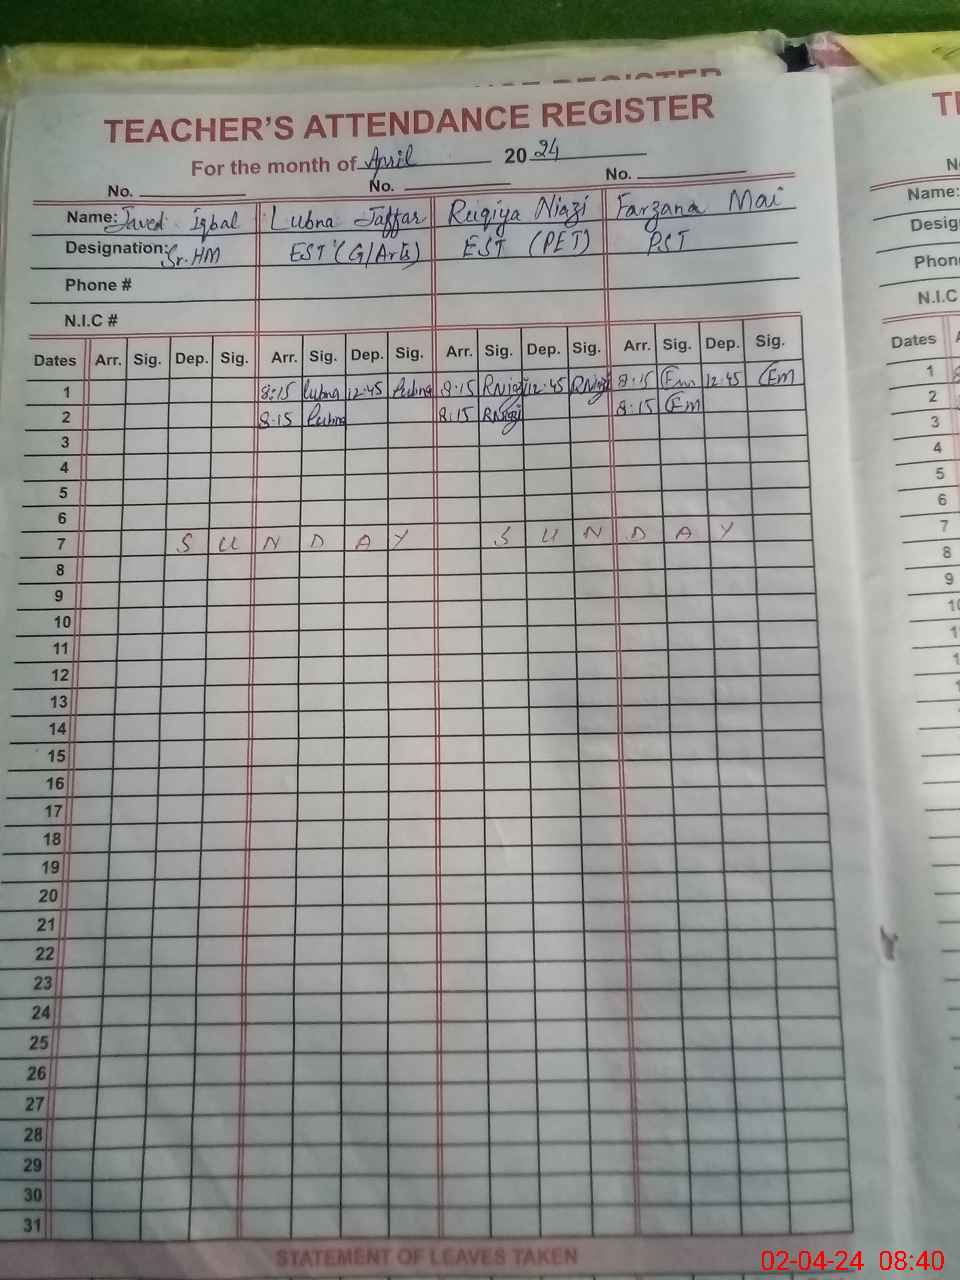 TEACHER'S ATTENDANCE REGISTER
For the month of April 2024
No. No. No.
Name: Javed Iqbal Lubna Jaffar Ruqiya Niazi Farzana Mai
Designation: Sr. HM EST (G/Arts) EST (PET) PST
Phone #
N.I.C #
Dates Arr. Sig. Dep. Sig. Arr. Sig. Dep. Sig. Arr. Sig. Dep. Sig. Arr. Sig. Dep. Sig.
1 8:15 Lubna 12:45 Lubna 8:15 RNiazi 12:45 RNiazi 8:15 Fm 12:45 Fm
2 8:15 Lubna 8:15 RNiazi 8:15 Fm
3
4
5
6
7 S U N D A Y S U N D A Y
8
9
10
11
12
13
14
15
16
17
18
19
20
21
22
23
24
25
26
27
28
29
30
31
STATEMENT OF LEAVES TAKEN
Name:
N.I.C
Dates
1
2
3
4
5
6
7
8
9
02-04-24 08:40